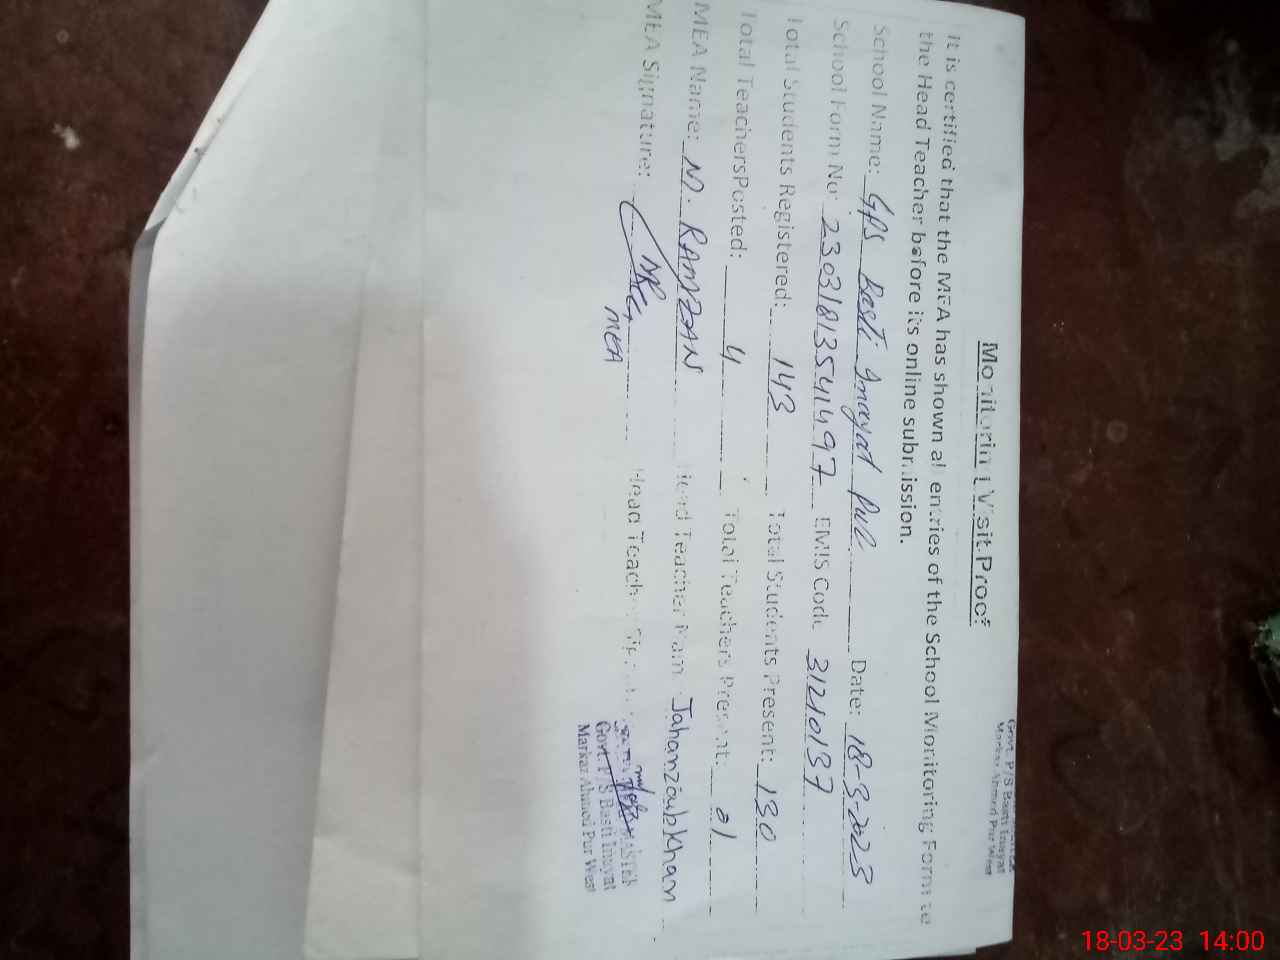 Govt. P/S Basti Inayat
Markaz Ahmed Pur West
Monitoring Visit Proof
It is certified that the MEA has shown all entries of the School Monitoring Form to
the Head Teacher before its online submission.
School Name: GPS Basti Inayat Date: 18-3-2023
School Form No: 23031813541497 EMIS Code 31210137
Total Students Registered: 143 Total Students Present: 130
Total Teachers Posted: 4 Total Teachers Present: 01
MEA Name: M. RAMZAN Head Teacher Name Jahanzaib Khan
MEA Signature: MEA Head Teacher
Govt. P/S Basti Inayat
Markaz Ahmed Pur West
18-03-23 14:00